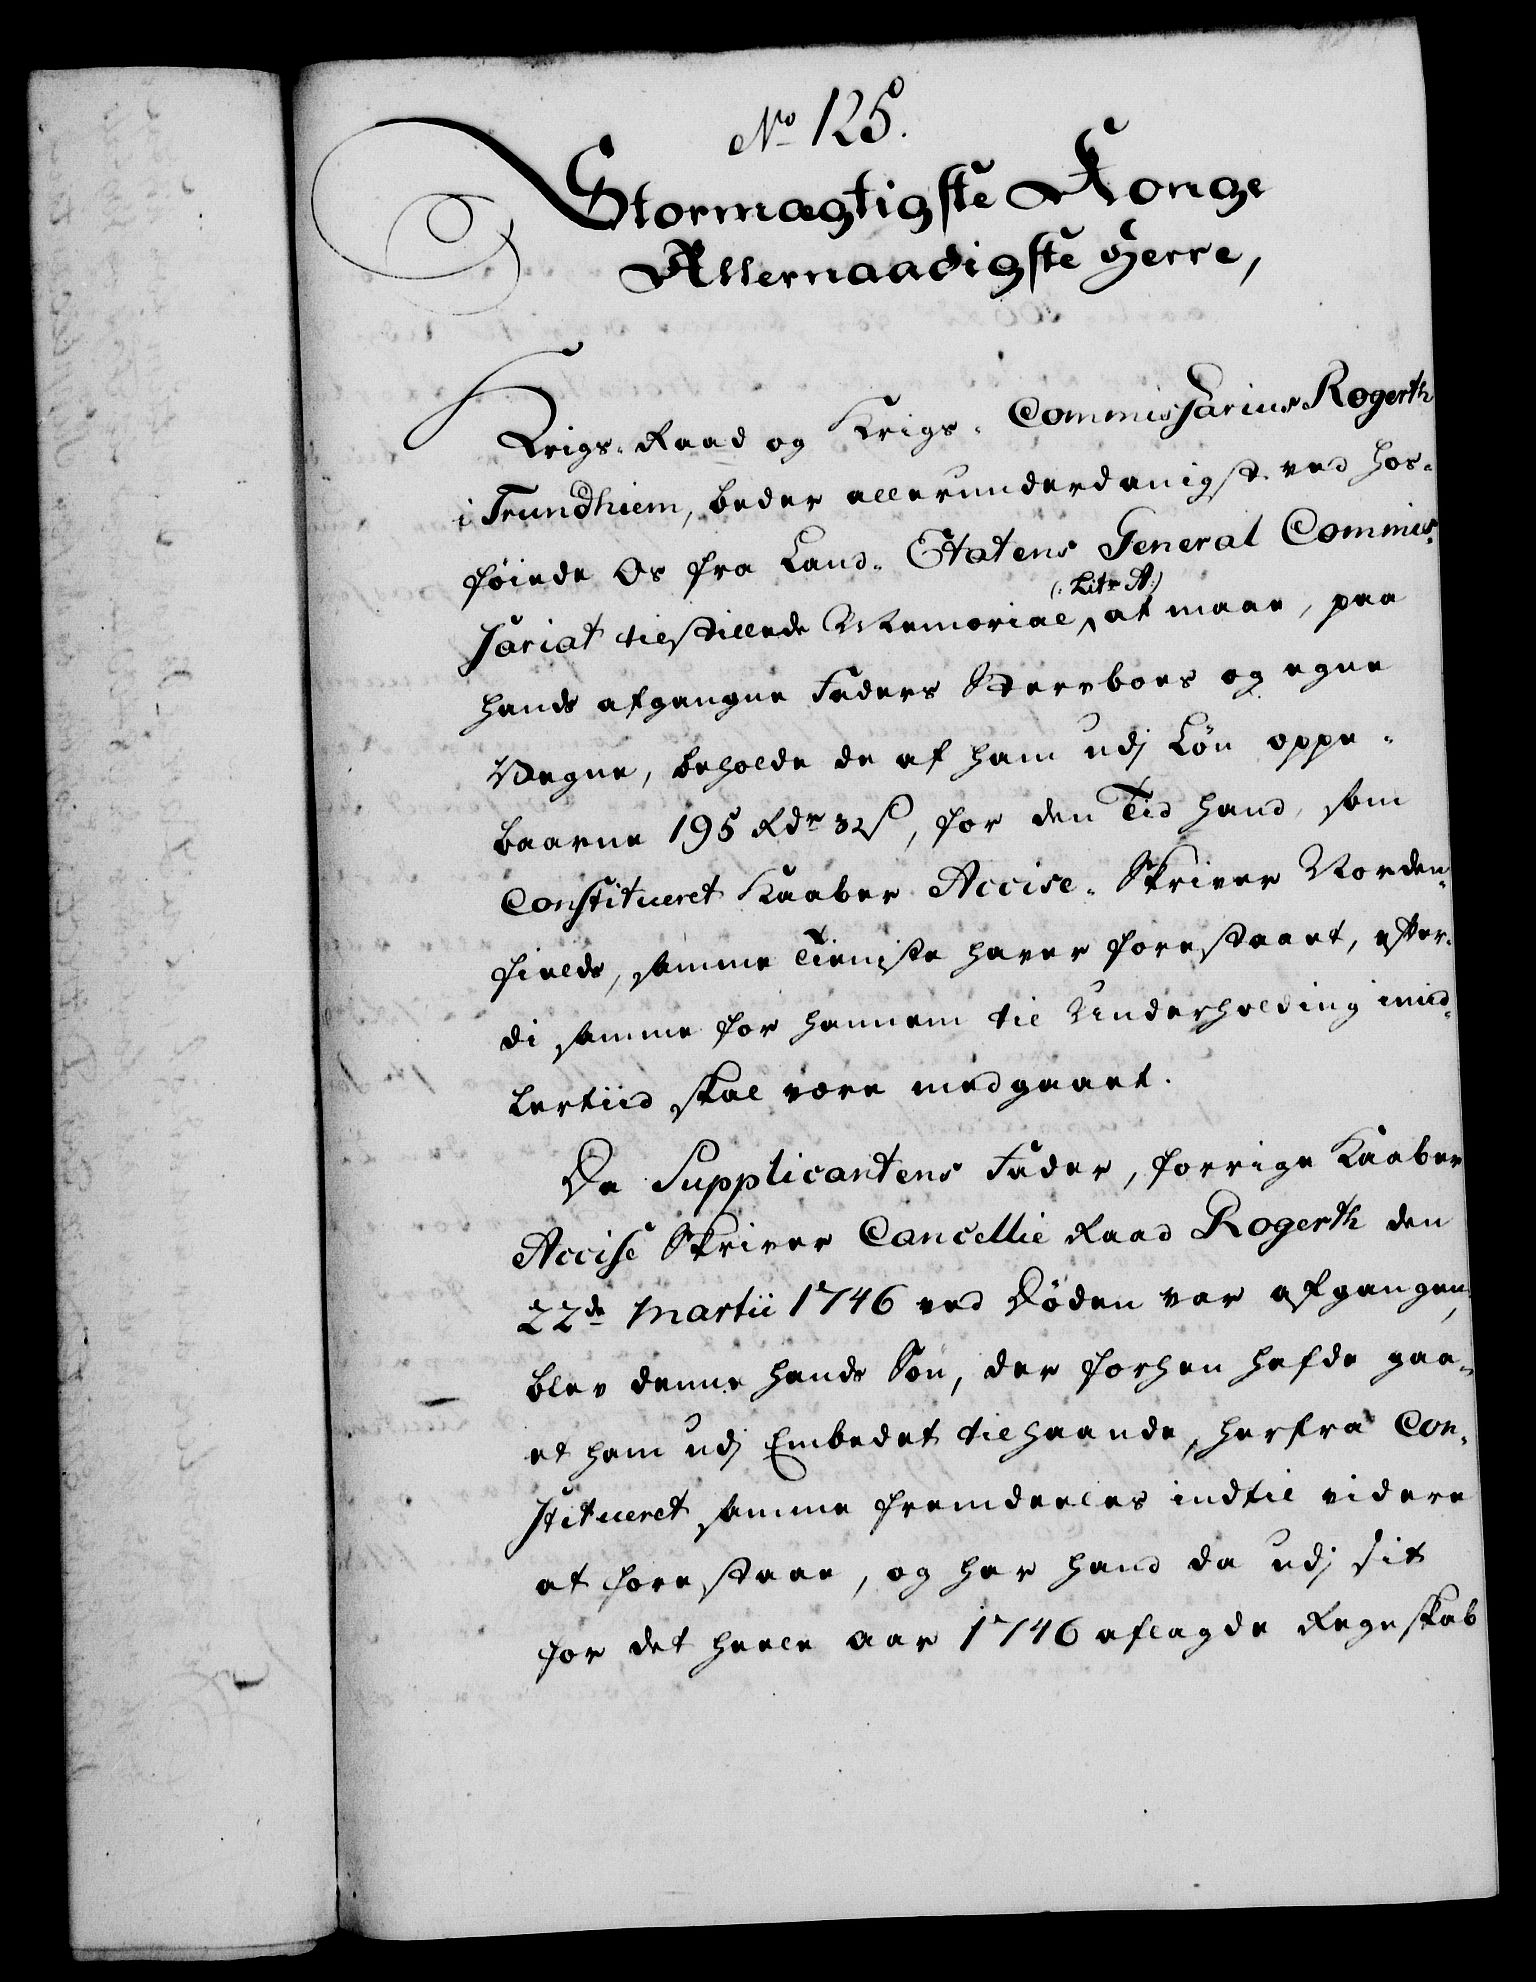 No 125.
Stormægtigste Konge
Allernaadigste Herre,
Krigs-Raad og Krigs-Commissarius Rogerth
i Trundhiem, beder allerunderdanigst ved hos-
føiede Os fra Land-Etatens General Commis-
sariat tilstillede Memorial (: Litr A:) at maae, paa
hands afgangne Faders Sterboes og egne
Vegne, beholde de af ham udj Løn oppe-
baarne 195 Rdr 32 s, for den Tid hand, som
Constitueret Kaaber Accise-Skriver Norden-
fields, samme Tieniste haver forestaaet, efter-
di samme for hannem til Underholding imid-
lertiid skal være medgaaet.
Da Supplicantens Fader, forrige Kaaber
Accise Skriver Cancellie Raad Rogerth den
22de Martii 1746 ved Døden var afgangen,
blev denne hands Søn, der forhen hafde gaa-
et ham udj Embedet tilhaande, herfra Con-
stitueret samme fremdeeles indtil videre
at forestaae, og har hand da udj sit
for det heele Aar 1746 aflagde Regeskab